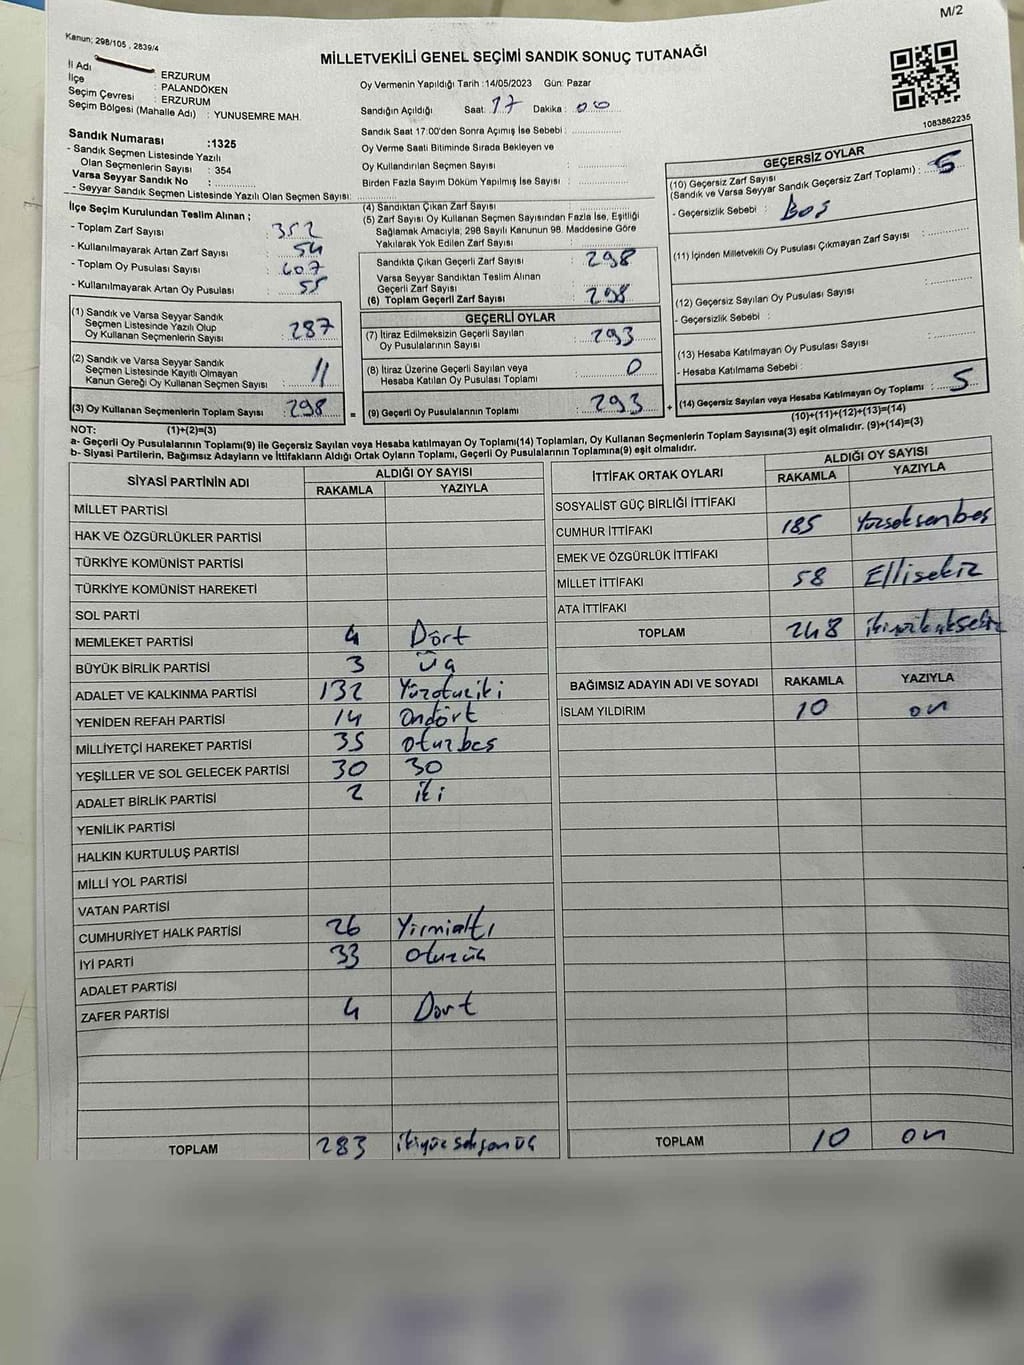 M/2
Kanun; 298/105 , 2839/4
MİLLETVEKİLİ GENEL SEÇİMİ SANDIK SONUÇ TUTANAĞI
İl Adı : ERZURUM
İlçe : PALANDÖKEN
Seçim Çevresi : ERZURUM
Seçim Bölgesi (Mahalle Adı) : YUNUSEMRE MAH.
Sandık Numarası :1325
- Sandık Seçmen Listesinde Yazılı
Olan Seçmenlerin Sayısı : 354
Varsa Seyyar Sandık No :
- Seyyar Sandık Seçmen Listesinde Yazılı Olan Seçmen Sayısı:
Oy Vermenin Yapıldığı Tarih :14/05/2023 Gün: Pazar
Sandığın Açıldığı Saat: 17 Dakika : 00
Sandık Saat 17:00'den Sonra Açımış İse Sebebi :
Oy Verme Saati Bitiminde Sırada Bekleyen ve
Oy Kullandırılan Seçmen Sayısı :
Birden Fazla Sayım Döküm Yapılmış İse Sayısı :
1083862235
İlçe Seçim Kurulundan Teslim Alınan ;
- Toplam Zarf Sayısı : 352
- Kullanılmayarak Artan Zarf Sayısı : 54
- Toplam Oy Pusulası Sayısı : 407
- Kullanılmayarak Artan Oy Pusulası : 55
(1) Sandık ve Varsa Seyyar Sandık
Seçmen Listesinde Yazılı Olup
Oy Kullanan Seçmenlerin Sayısı : 287
(2) Sandık ve Varsa Seyyar Sandık
Seçmen Listesinde Kayıtlı Olmayan
Kanun Gereği Oy Kullanan Seçmen Sayısı : 11
(3) Oy Kullanan Seçmenlerin Toplam Sayısı : 298 =
(1)+(2)=(3)
(4) Sandıktan Çıkan Zarf Sayısı :
(5) Zarf Sayısı Oy Kullanan Seçmen Sayısından Fazla İse, Eşitliği
Sağlamak Amacıyla; 298 Sayılı Kanunun 98. Maddesine Göre
Yakılarak Yok Edilen Zarf Sayısı :
Sandıkta Çıkan Geçerli Zarf Sayısı : 298
Varsa Seyyar Sandıktan Teslim Alınan
Geçerli Zarf Sayısı :
(6) Toplam Geçerli Zarf Sayısı : 298
GEÇERLİ OYLAR
(7) İtiraz Edilmeksizin Geçerli Sayılan
Oy Pusulalarının Sayısı : 293
(8) İtiraz Üzerine Geçerli Sayılan veya
Hesaba Katılan Oy Pusulası Toplamı : 0
(9) Geçerli Oy Pusulalarının Toplamı : 293 +
GEÇERSİZ OYLAR
(10) Geçersiz Zarf Sayısı
(Sandık ve Varsa Seyyar Sandık Geçersiz Zarf Toplamı) : 5
- Geçersizlik Sebebi : Boş
(11) İçinden Milletvekili Oy Pusulası Çıkmayan Zarf Sayısı :
(12) Geçersiz Sayılan Oy Pusulası Sayısı :
- Geçersizlik Sebebi :
(13) Hesaba Katılmayan Oy Pusulası Sayısı :
- Hesaba Katılmama Sebebi :
(14) Geçersiz Sayılan veya Hesaba Katılmayan Oy Toplamı : 5
(10)+(11)+(12)+(13)=(14)
NOT:
a- Geçerli Oy Pusulalarının Toplamı(9) ile Geçersiz Sayılan veya Hesaba katılmayan Oy Toplamı(14) Toplamları, Oy Kullanan Seçmenlerin Toplam Sayısına(3) eşit olmalıdır. (9)+(14)=(3)
b- Siyasi Partilerin, Bağımsız Adayların ve İttifakların Aldığı Ortak Oyların Toplamı, Geçerli Oy Pusulalarının Toplamına(9) eşit olmalıdır.
SİYASİ PARTİNİN ADI ALDIĞI OY SAYISI
RAKAMLA YAZIYLA
MİLLET PARTİSİ
HAK VE ÖZGÜRLÜKLER PARTİSİ
TÜRKİYE KOMÜNİST PARTİSİ
TÜRKİYE KOMÜNİST HAREKETİ
SOL PARTİ
MEMLEKET PARTİSİ 4 Dört
BÜYÜK BİRLİK PARTİSİ 3 üç
ADALET VE KALKINMA PARTİSİ 132 Yüzotuziki
YENİDEN REFAH PARTİSİ 14 Ondört
MİLLİYETÇİ HAREKET PARTİSİ 35 otuzbeş
YEŞİLLER VE SOL GELECEK PARTİSİ 30 30
ADALET BİRLİK PARTİSİ 2 iki
YENİLİK PARTİSİ
HALKIN KURTULUŞ PARTİSİ
MİLLİ YOL PARTİSİ
VATAN PARTİSİ
CUMHURİYET HALK PARTİSİ 26 Yirmialtı
İYİ PARTİ 33 otuzüç
ADALET PARTİSİ
ZAFER PARTİSİ 4 Dört
TOPLAM 283 ikiyüzseksenüç
İTTİFAK ORTAK OYLARI ALDIĞI OY SAYISI
RAKAMLA YAZIYLA
SOSYALİST GÜÇ BİRLİĞİ İTTİFAKI
CUMHUR İTTİFAKI 185 Yüzseksenbeş
EMEK VE ÖZGÜRLÜK İTTİFAKI
MİLLET İTTİFAKI 58 Ellisekiz
ATA İTTİFAKI
TOPLAM 248
BAĞIMSIZ ADAYIN ADI VE SOYADI RAKAMLA YAZIYLA
İSLAM YILDIRIM 10 on
TOPLAM 10 on